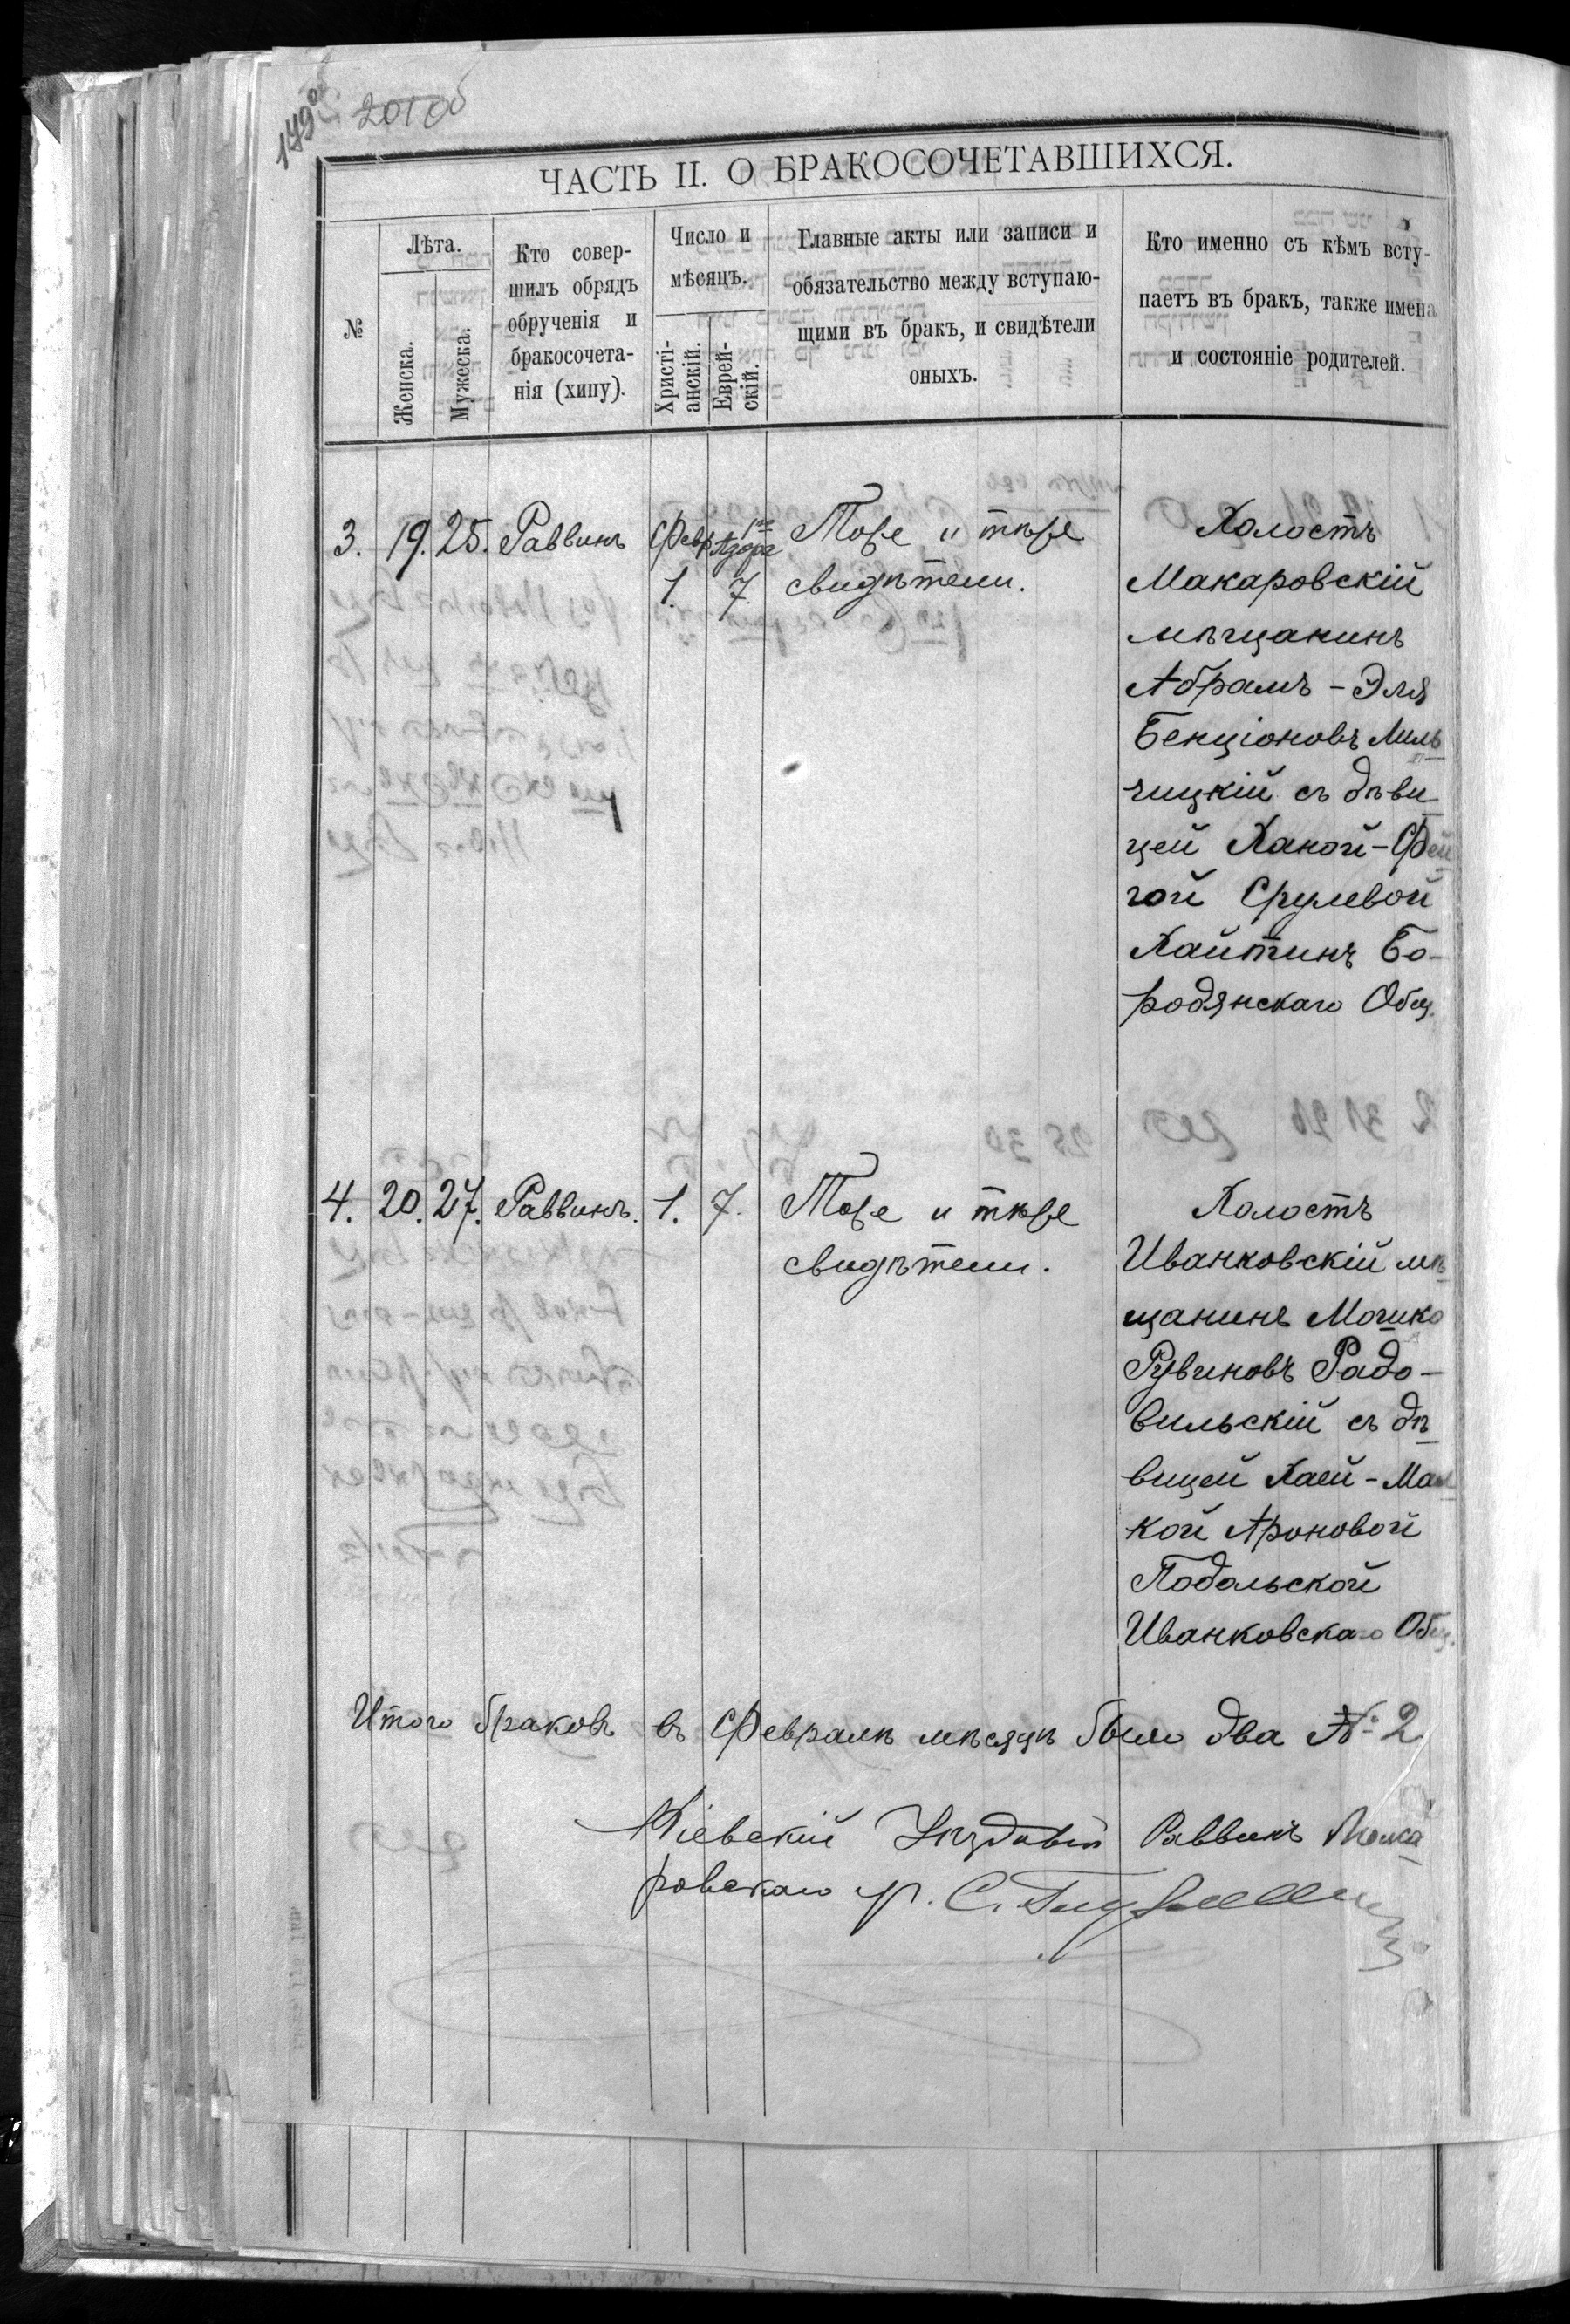 149об
201об
ЧАСТЬ II. О БРАКОСОЧЕТАВШИХСЯ.
№
Лѣта.
Женска.
Мужеска.
Кто совер-
шилъ обрядъ
обрученія и
бракосочета-
нія (хипу).
Число и
мѣсяцъ.
Христі-
анскій.
Еврей-
скій.
Главные акты или записи и
обязательство между вступаю-
щими въ бракъ, и свидѣтели
оныхъ.
Кто именно съ кѣмъ всту-
паетъ въ бракъ, также имена
и состояніе родителей.
3. 19. 25. Раввинъ Февр. 1го Адора Тоже и тѣже Холостъ
1. 7. свидѣтели. Макаровскій
мѣщанинъ
Абрамъ-Эля
Бенціоновъ Миль
чицкій съ дѣви
цей Ханой-Фей
гой Срулевой
Хайтинъ Бо-
родянскаго Общ.
4. 20. 27. Раввинъ. 1. 7. Тоже и тѣже Холостъ
свидѣтели. Иванковскій мѣ
щанинъ Мошко
Рувиновъ Радо-
вильскій съ дѣ
вицей Хаей-Мал
кой Ароновой
Подольской
Иванковскаго Общ.
Итого браковъ въ Февралѣ мѣсяцѣ было два № 2
Кіевскій Уѣздовый Раввинъ Мака
ровскаго уч. С.